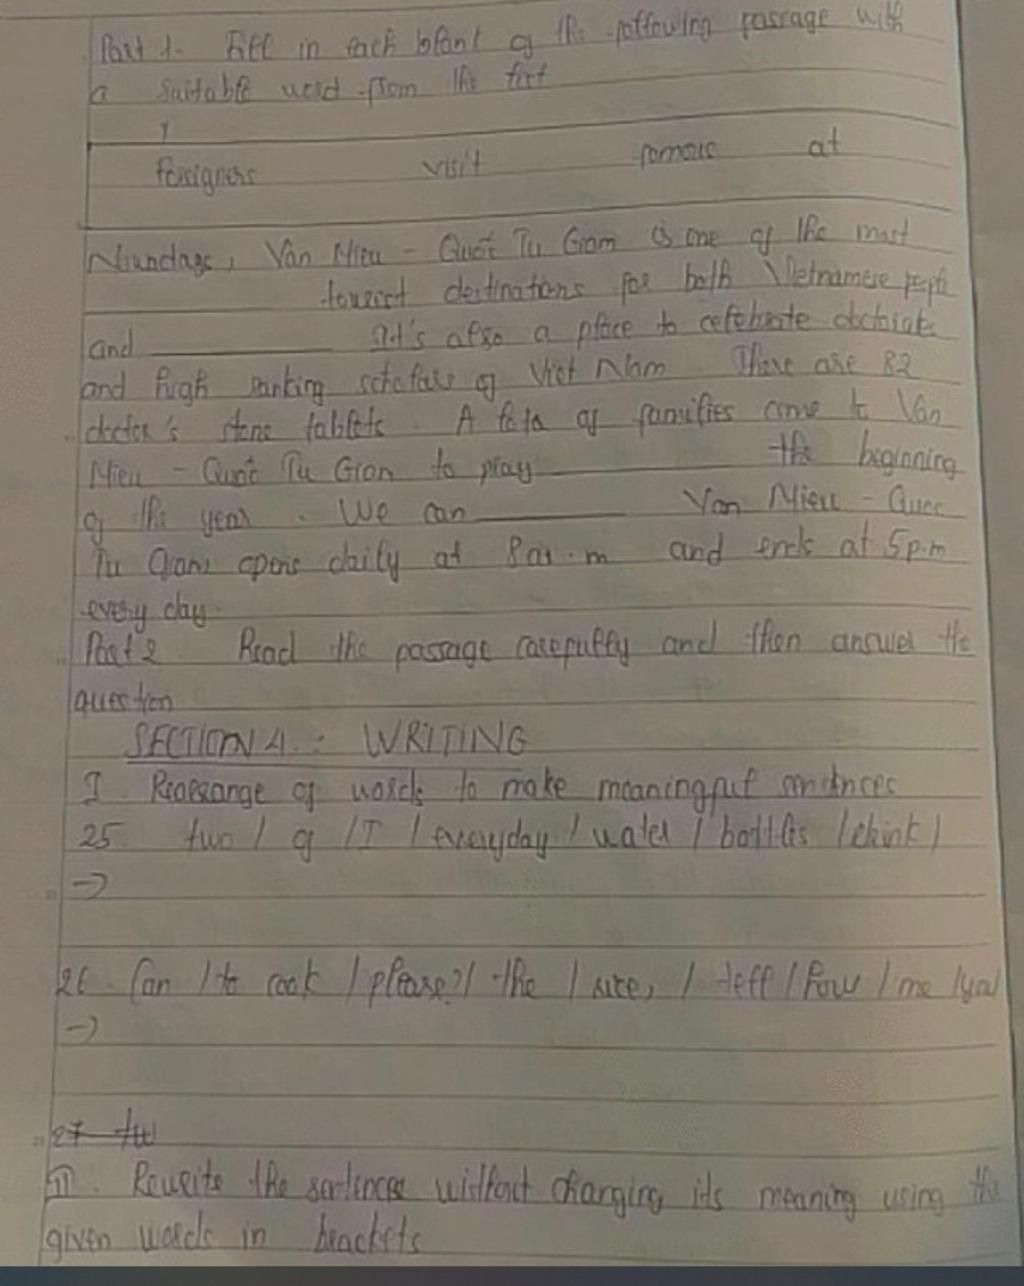 Part 1. Fill in each blank of the following passage with
a suitable word from the list
foreigners visit famous at
Nowadays, Văn Miếu - Quốc Tử Giam is one of the most
__________ tourist destinations for both Vietnamese people
and __________ It's also a place to celebrate doctorate
and high ranking scholars of Viet Nam. There are 82
doctor's stone tablets. A lots of families come to Văn
Mieu - Quốc Tu Giam to pray __________ the beginning
of the year. We can __________ Van Mieu - Quoc
Tu Giam opens daily at 8 a.m and ends at 5 p.m
every day.
Part 2 Read the passage carefully and then answer the
question
SECTION 4.: WRITING
I. Rearrange of words to make meaningful sentences
25. two / of / I / everyday / water / bottles / drink /
->
26. Can / to cook / please? / the / rice, / tell / how / me / you
->
27 tw
II. Rewrite the sentences without changing its meaning using the
given words in brackets